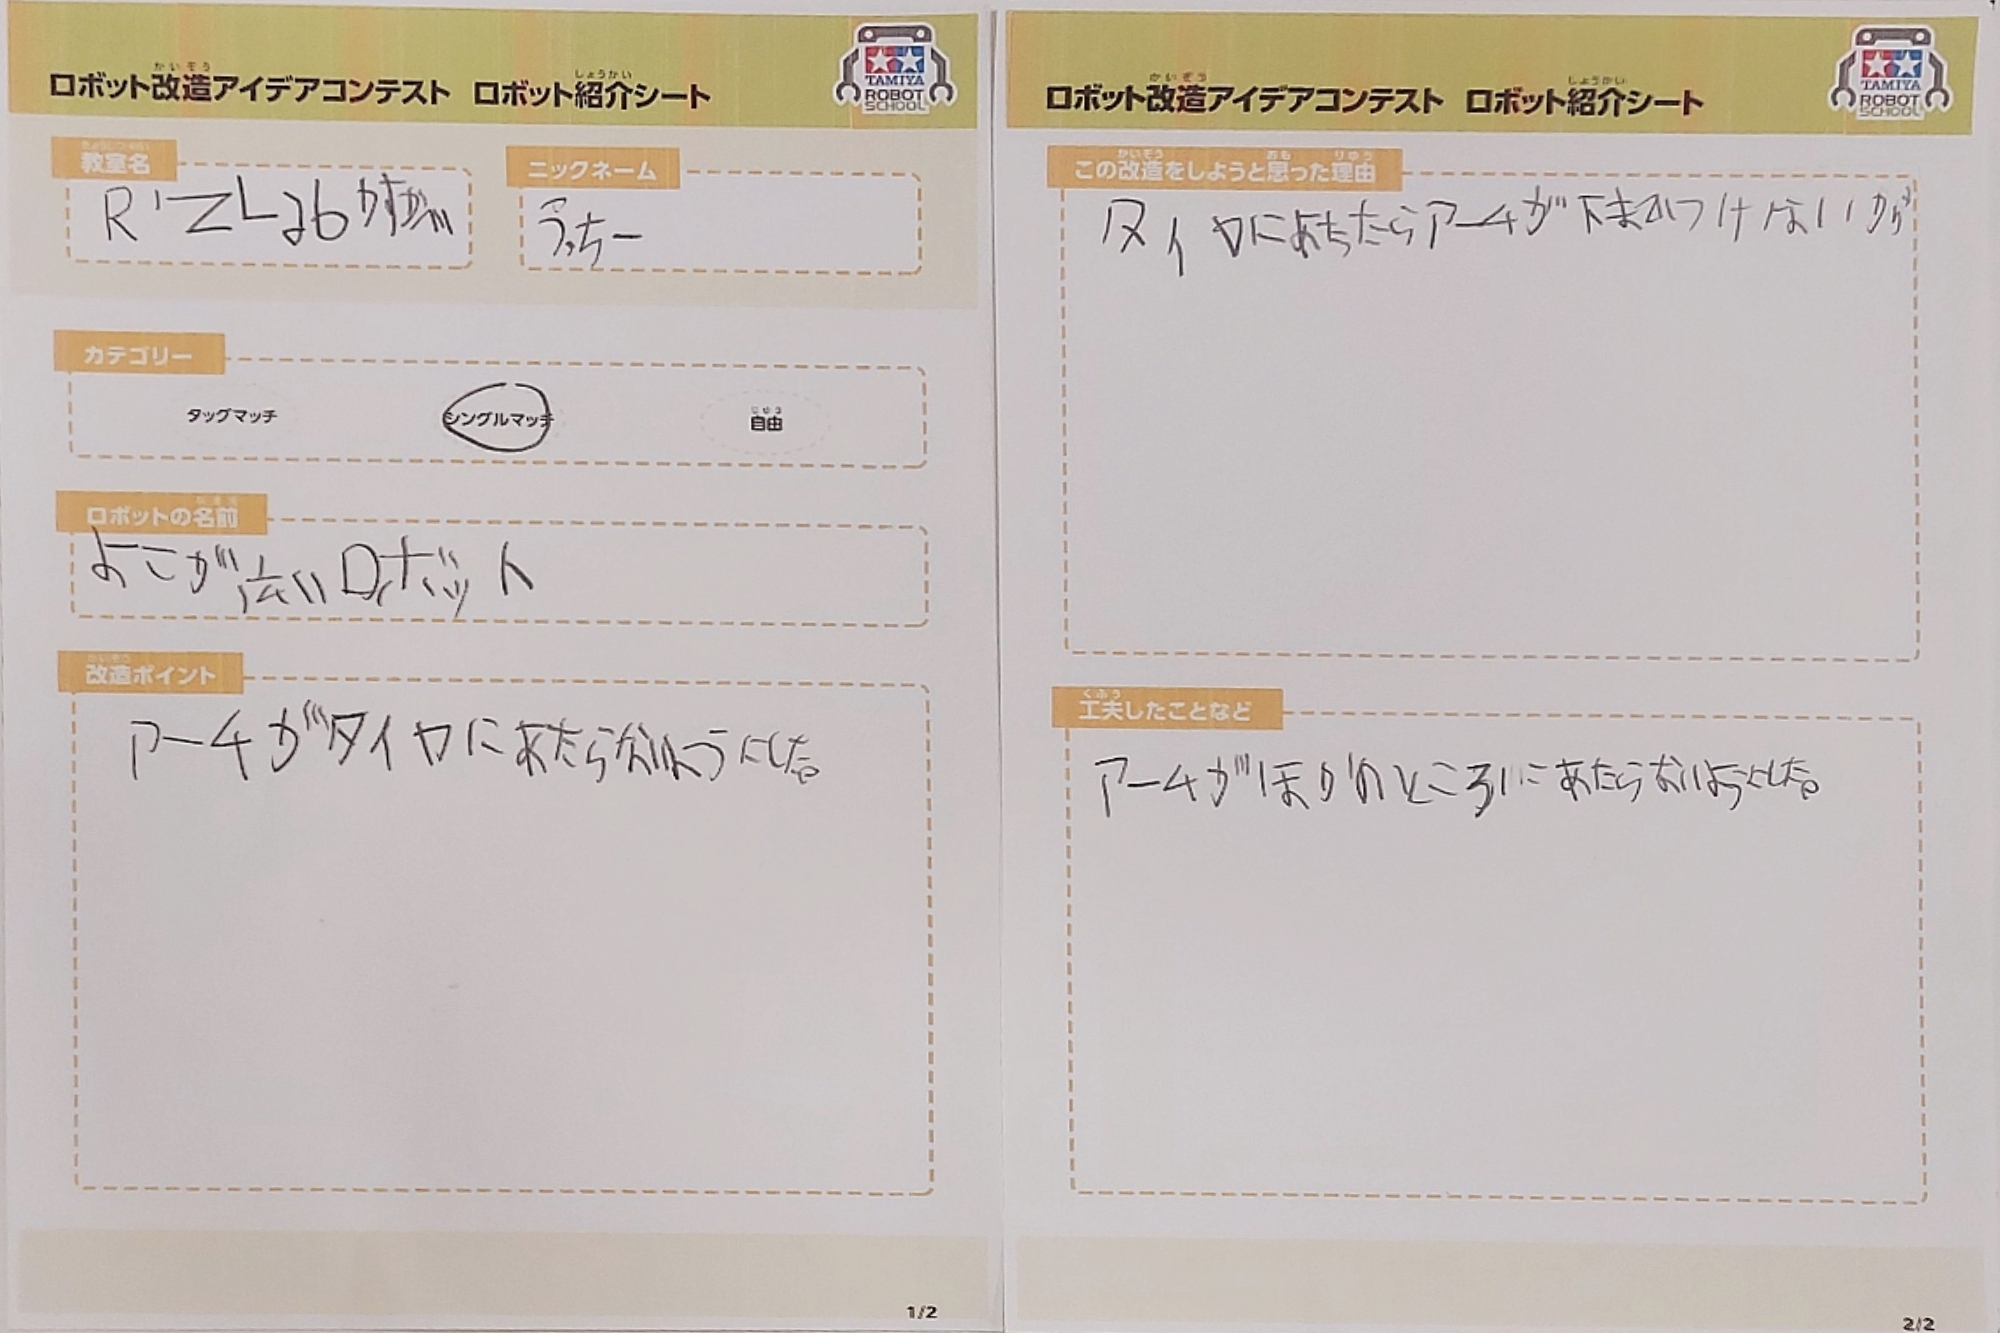 ロボット改造アイデアコンテスト ロボット紹介シート
かいぞう
しょうかい
TAMIYA
ROBOT
SCHOOL
教室名
R'ZLab
ニックネーム
うっちー
カテゴリー
タッグマッチ
シングルマッチ
じゆう
自由
ロボットの名前
よこが広いロボット
かいぞう
改造ポイント
アーチがタイヤにあたらないようにした。
1/2
ロボット改造アイデアコンテスト ロボット紹介シート
かいぞう
しょうかい
TAMIYA
ROBOT
SCHOOL
かいぞう
おも
りゆう
この改造をしようと思った理由
タイヤにあちたらアーチが下まがつけない
くふう
工夫したことなど
アームがほかのところにあたらないようにした。
2/2